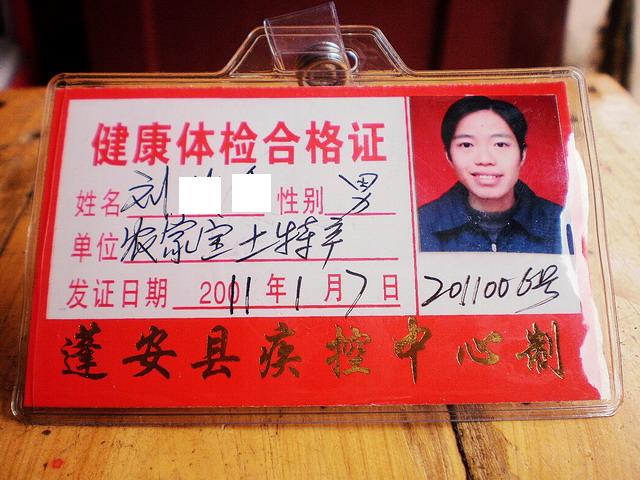 健康体检合格证
姓名 刘 性别 男
单位 农家宝土特产
发证日期 2011年1月7日
2011006号
蓬安县疾控中心制